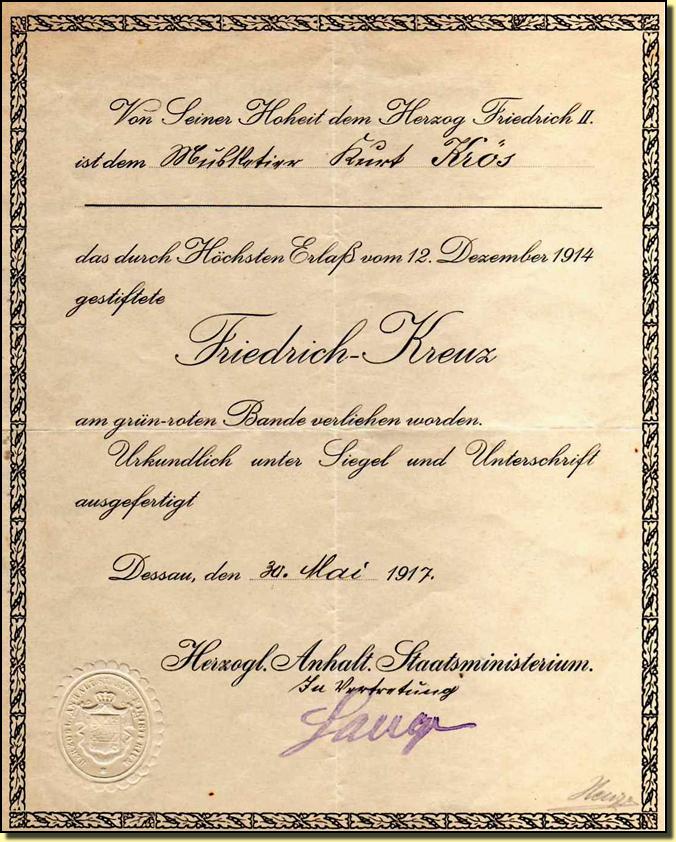 Von Seiner Hoheit dem Herzog Friedrich II.
ist dem Musketier Kurt Krös
das durch Höchsten Erlaß vom 12. Dezember 1914
gestiftete
Friedrich-Kreuz
am grün-roten Bande verliehen worden.
Urkundlich unter Siegel und Unterschrift
ausgefertigt
Dessau, den 30. Mai 1917.
Herzogl. Anhalt. Staatsministerium.
In Vertretung